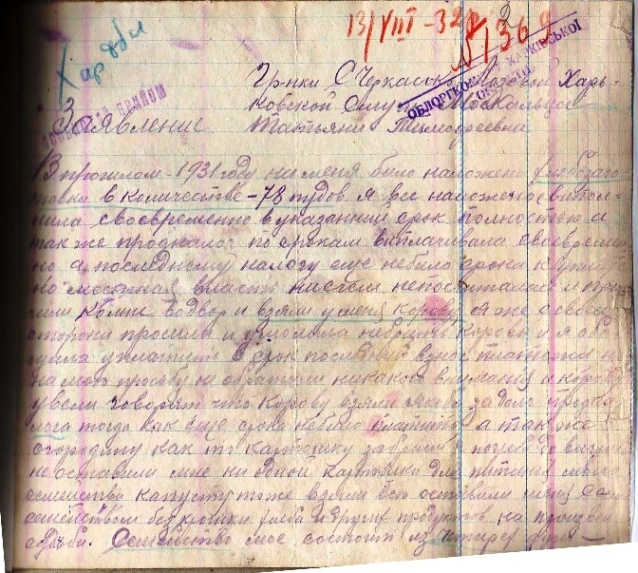 13/VIII-32 2
№1369
Хар обл
Гр-нки С Черкасской Лозовой Харь-
ковской Москальцо-
Заявление Татьяни Тимофеевни
ОБЛОРГКОМ ХАРКІВСЬКОЇ
В прошлом 1931 году на меня било наложено хлебозаго-
товки в количестве - 78 пудов я все наложеное випол-
нила своевременно в указанний срок полностью а
так же продналог по срокам виплачивала своевремен-
но а последнему налогу еще небило срока к уплате
но местная власть нисчем непосчиталась и при-
шли ко мне во двор и взяли у меня корову, я же с своей
сторони просила и умоляла небрать корови и я обе-
щала уплатить в срок последний взнос платежи но
на мою просьбу не обратили никакого внимания и корову
увели говорят что корову взяли якоби за долг продна-
лога тогда как еще срока небило платить а так же
огородину как то картошку забрали с погреба до
не оставили мне ни одной картошки для питания моего
семейства капусту тоже взяли всю оставили меня с
семейством без крошки хлеба и других продуктов на произвол
судьби. Семейство мое состоит из четирех